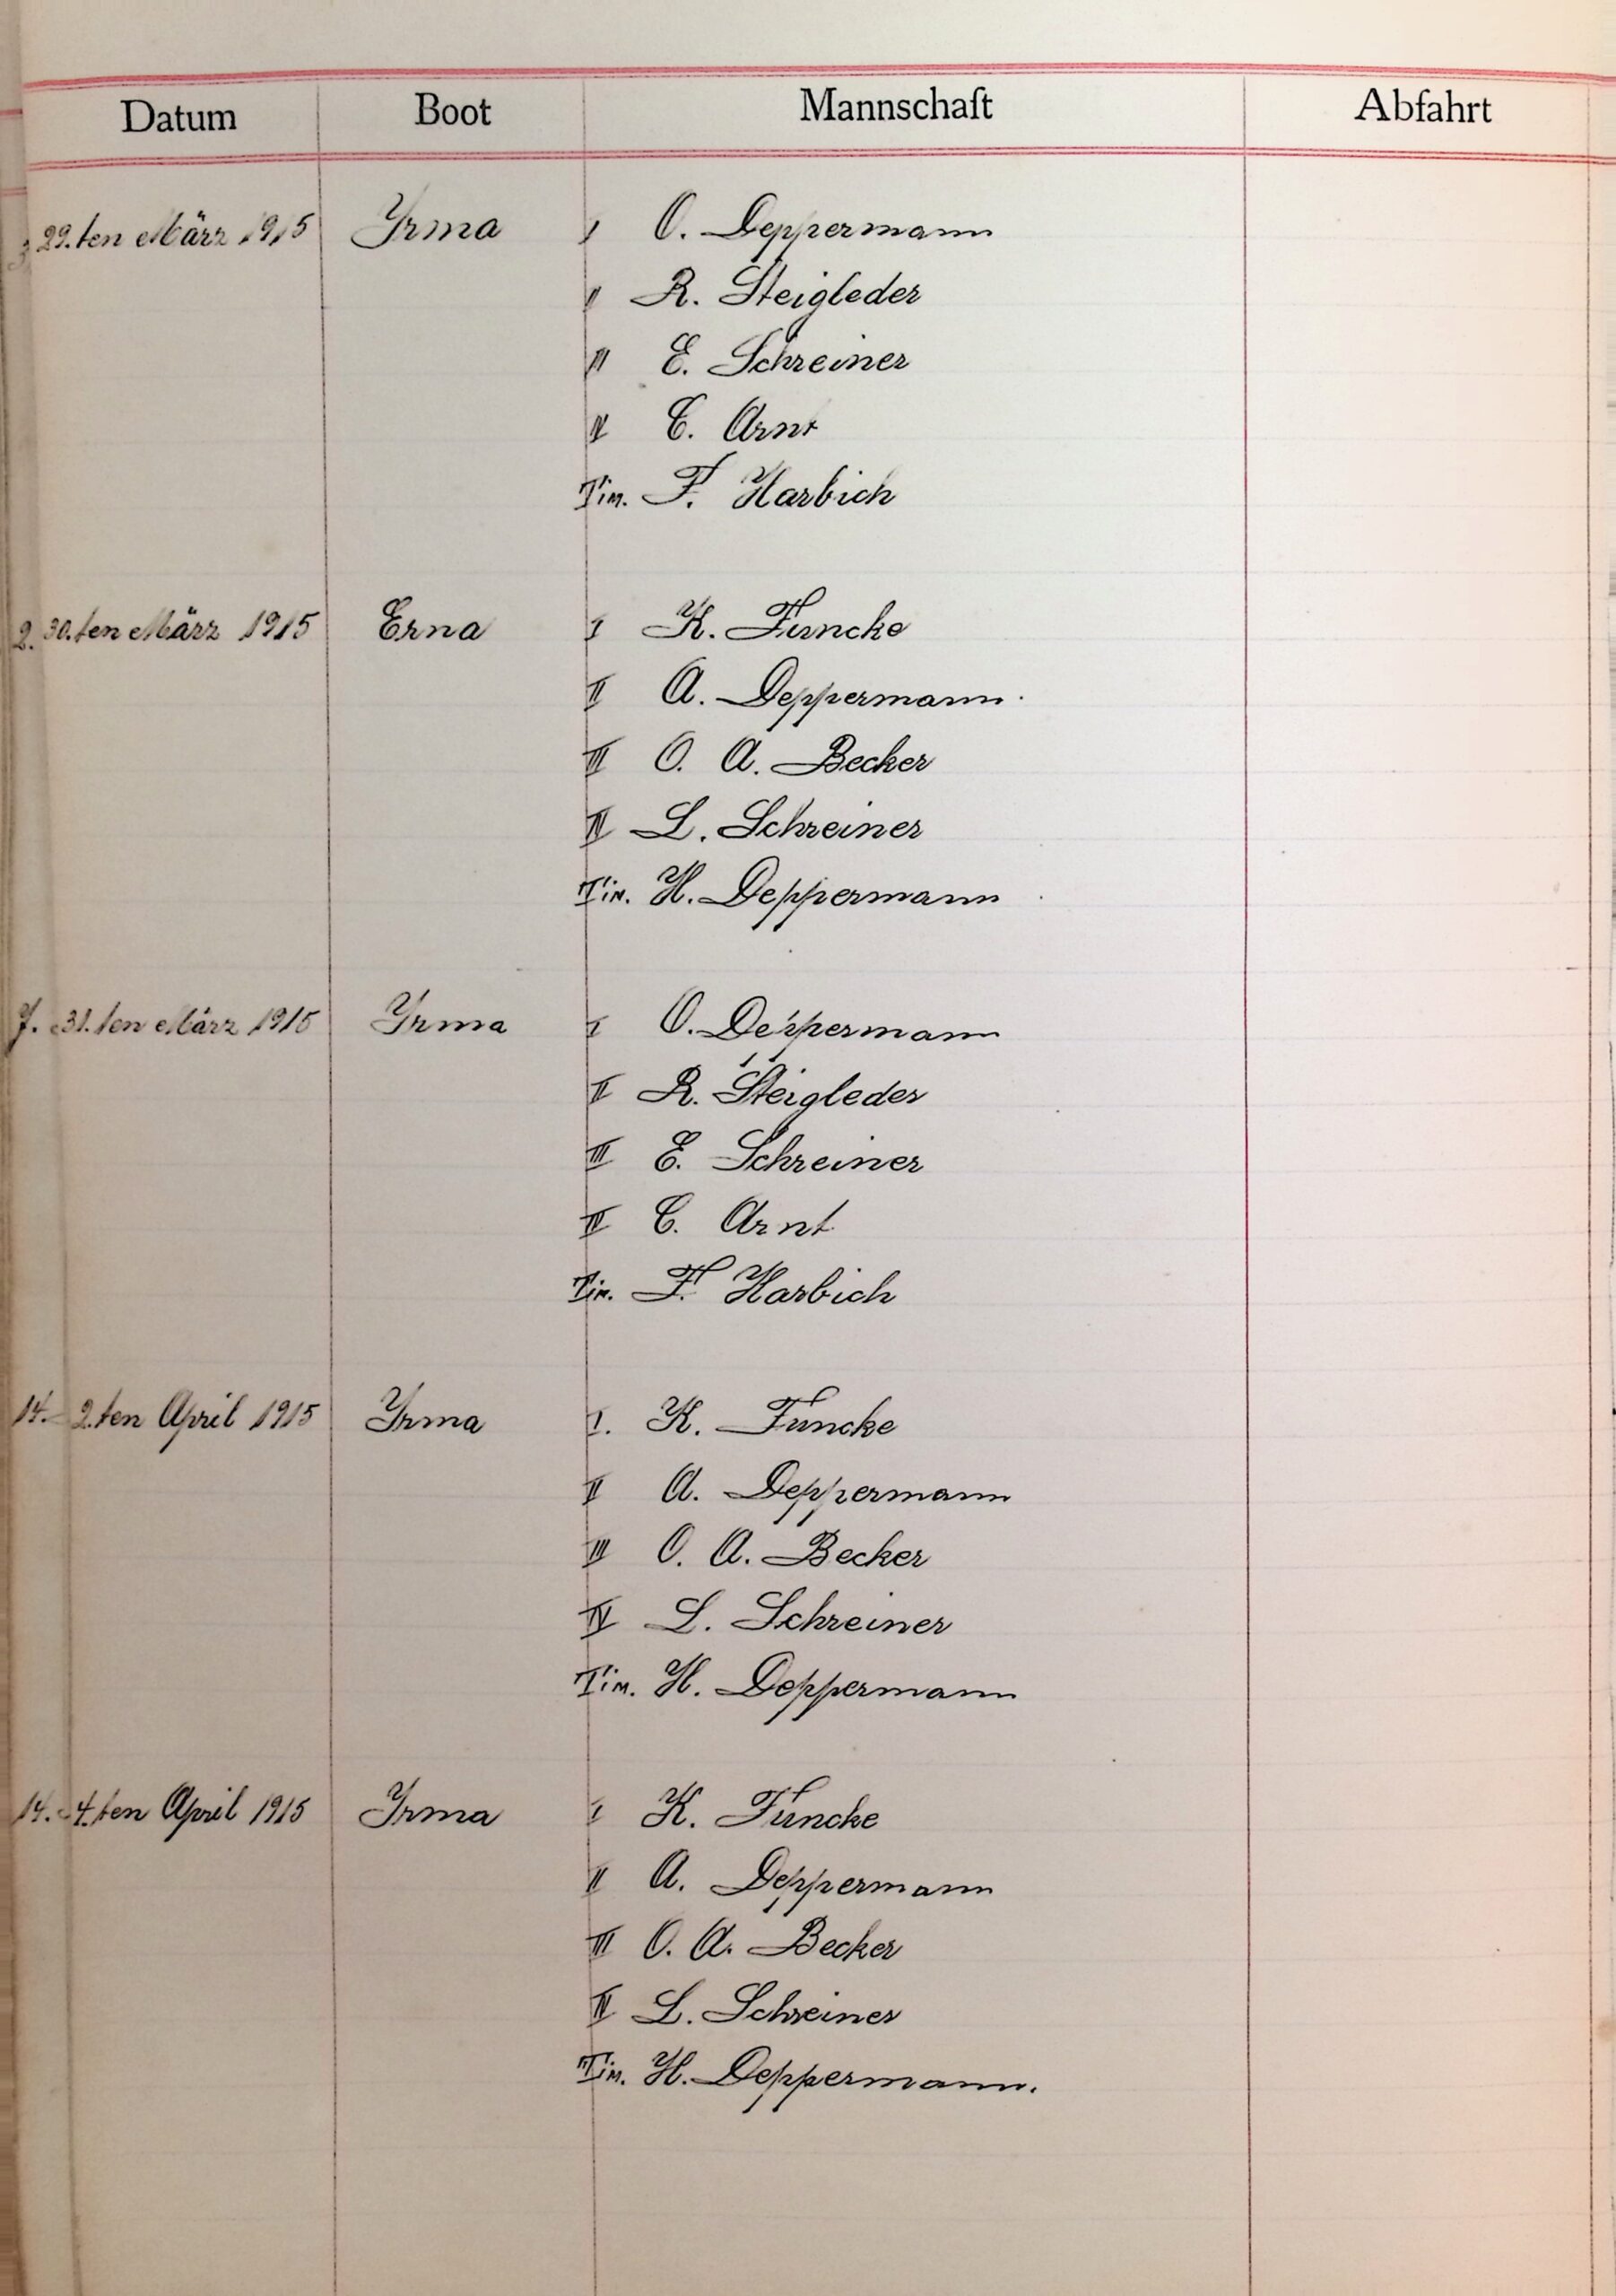 Datum Boot Mannschaft Abfahrt
29.ten März 1915 Yrma I O. Deppermann
II R. Steigleder
III E. Schreiner
IV C. Arnt
Tim. F. Harbich
2. 30.ten März 1915 Erna I K. Funcke
II A. Deppermann.
III O. A. Becker
IV L. Schreiner
Tim. H. Deppermann
7. 31.ten März 1915 Yrma I O. Deppermann
II R. Steigleder
III E. Schreiner
IV C. Arnt
Tim. F. Harbich
14. 2.ten April 1915 Yrma I. K. Funcke
II A. Deppermann
III O. A. Becker
IV L. Schreiner
Tim. H. Deppermann
14. 4.ten April 1915 Yrma I K. Funcke
II A. Deppermann
III O. A. Becker
IV L. Schreiner
Tim. H. Deppermann.